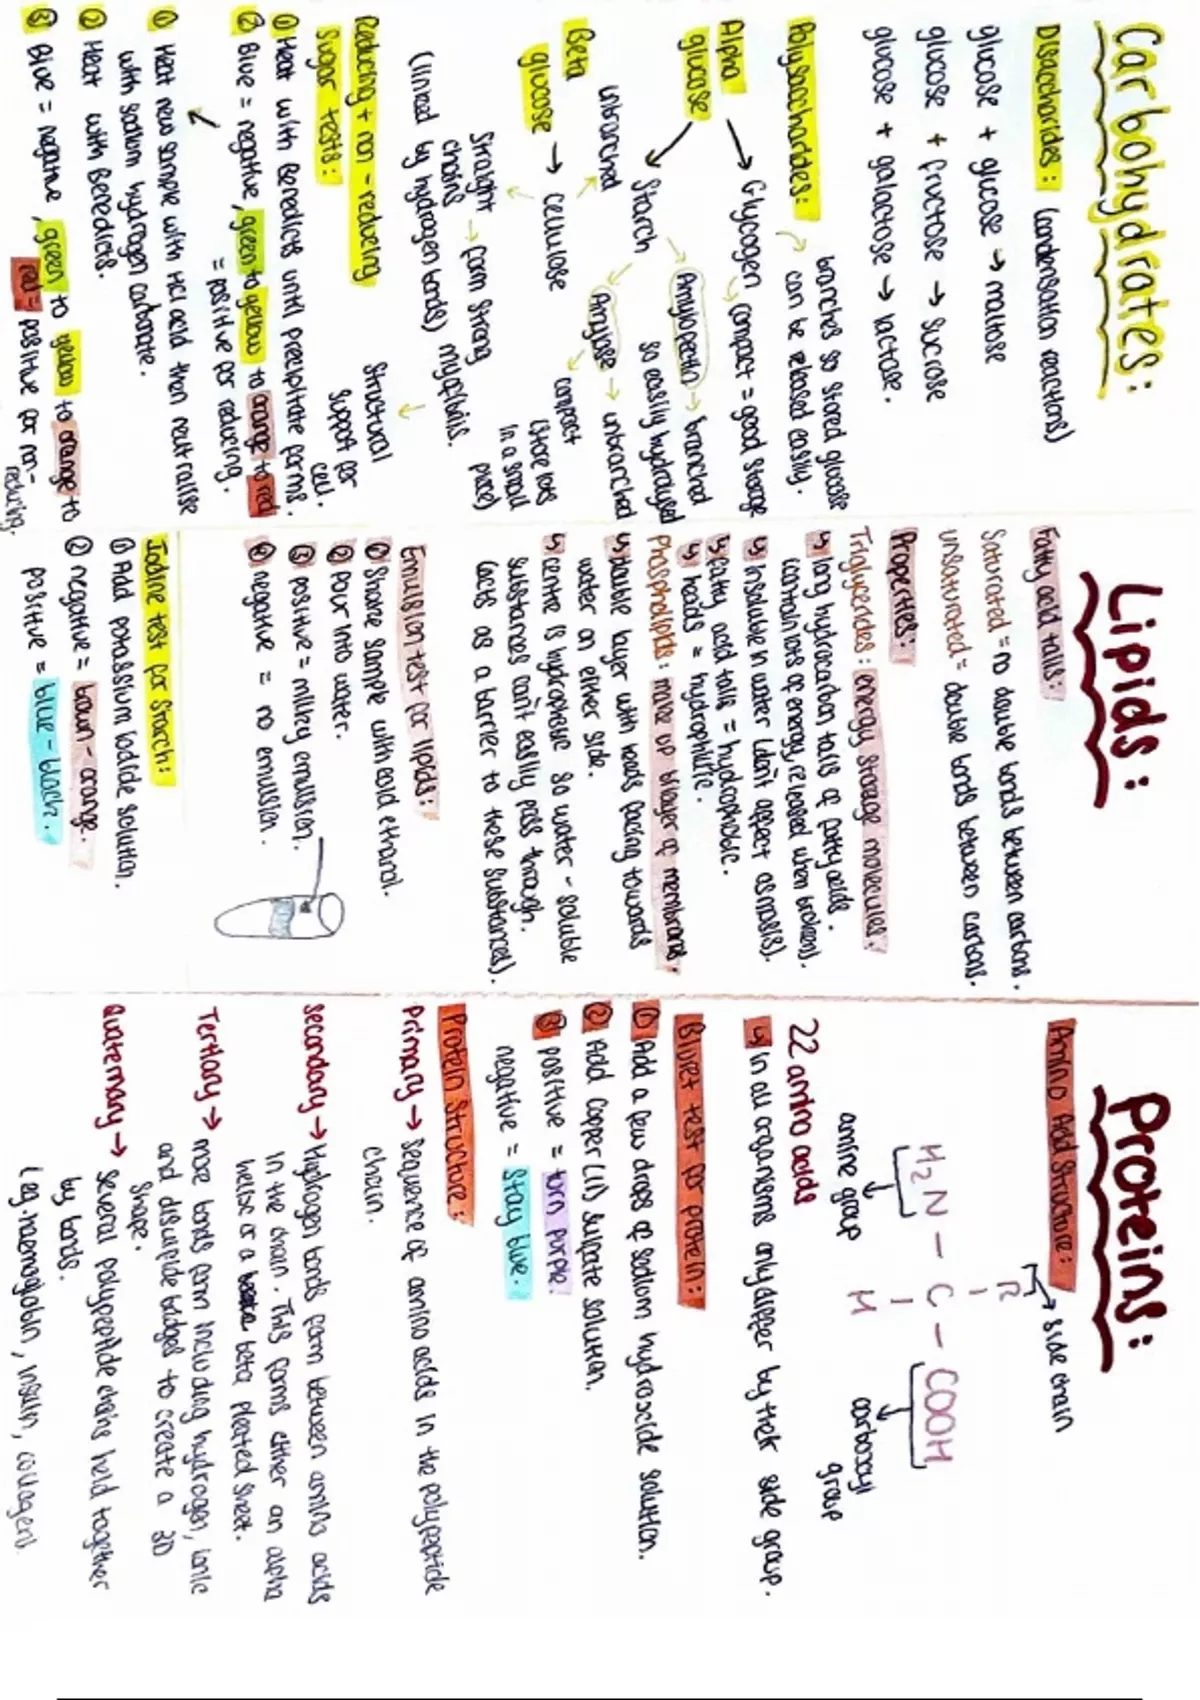 Carbohydrates:
Disaccharides: (condensation reactions)
glucose + glucose → maltose
glucose + fructose → sucrose
glucose + galactose → lactose.
Polysaccharides:
branches so stored glucose
can be released easily.
Alpha glucose
→ Glycogen → compact = good storage
→ Starch
Amylopectin → branched
so easily hydrolysed
Amylose → unbranched
compact
(store lots
in a small
place)
unbranched
Beta glucose → cellulose
Straight chains → form strong
(linked by hydrogen bonds) myofibrils.
structural
support for
cell.
Reducing + non-reducing
Sugar tests:
① Heat with Benedicts until precipitate forms.
② Blue = negative, green to yellow to orange to red
= positive for reducing.
① Heat new sample with HCl acid then neutralise
with sodium hydrogen carbonate.
② Heat with Benedicts.
③ Blue = negative, green to yellow to orange to
red = positive for non-
reducing.
Lipids:
Fatty acid tails:
Saturated = no double bonds between carbons.
unsaturated = double bonds between carbons.
Properties:
Triglycerides: energy storage molecules.
↳ long hydrocarbon tails of fatty acids.
(contain lots of energy released when broken).
↳ insoluble in water (don't affect osmosis).
↳ fatty acid tails = hydrophobic.
↳ heads = hydrophilic.
Phospholipids: make up bilayer of membranes.
↳ double layer with heads facing towards
water on either side.
↳ centre is hydrophobic so water-soluble
substances can't easily pass through.
(acts as a barrier to these substances).
Emulsion test for lipids:
① Shake sample with ethanol.
② Pour into water.
③ positive = milky emulsion.
④ negative = no emulsion.
Iodine test for Starch:
① Add potassium iodide solution.
② negative = brown-orange.
positive = blue-black.
Proteins:
Amino Acid Structure:
side chain
R
H₂N – C – COOH
H
amine group
carboxyl
group
22 amino acids
↳ in all organisms only differ by their side group.
Biuret test for protein:
① Add a few drops of sodium hydroxide solution.
② Add copper (II) sulfate solution.
③ positive = turn purple.
negative = stay blue.
Protein Structure:
Primary → sequence of amino acids in the polypeptide
chain.
Secondary → Hydrogen bonds form between amino acids
in the chain. This forms either an alpha
helix or a beta pleated sheet.
Tertiary → more bonds form including hydrogen, ionic
and disulfide bridges to create a 3D
shape.
Quaternary → several polypeptide chains held together
by bonds.
(eg. haemoglobin, insulin, collagen).